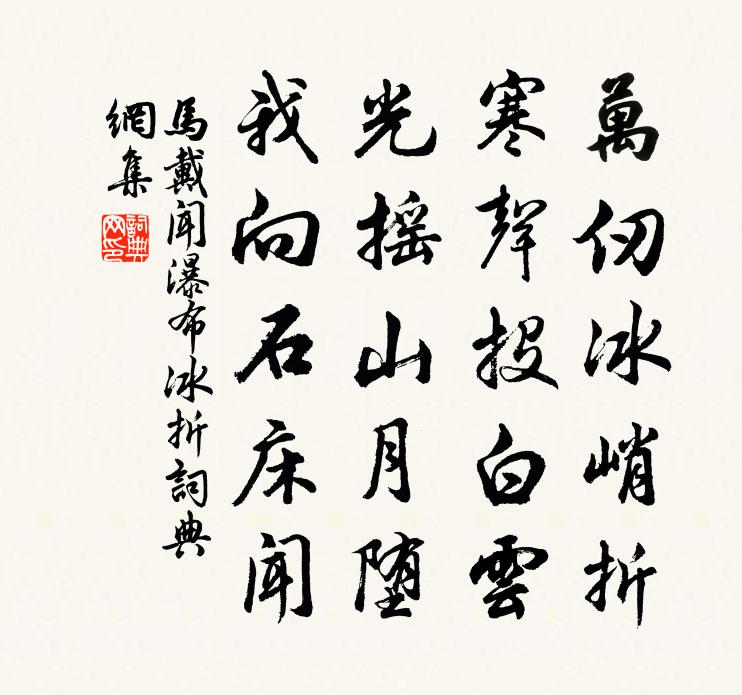 萬仞冰峭折
寒聲投白雲
光摇山月墮
我向石床聞
馬戴聞瀑布冰折詞典
網集
詞典
网印